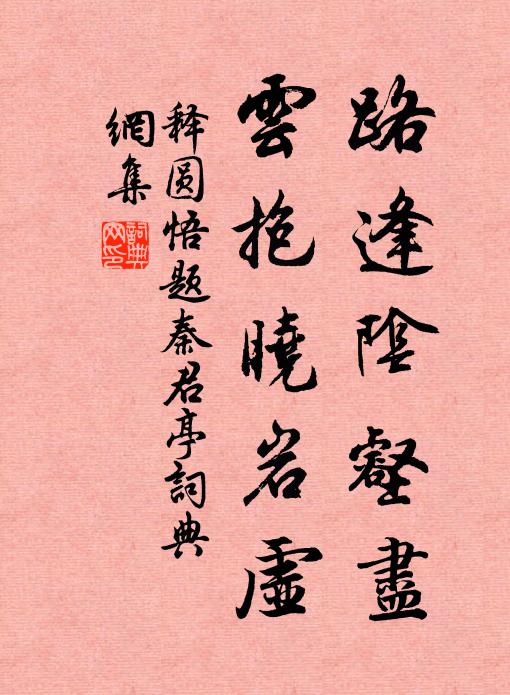 路逢陰壑盡
雲抱曉岩虛
释圆悟题秦君亭詞典
網集
詞典
网印